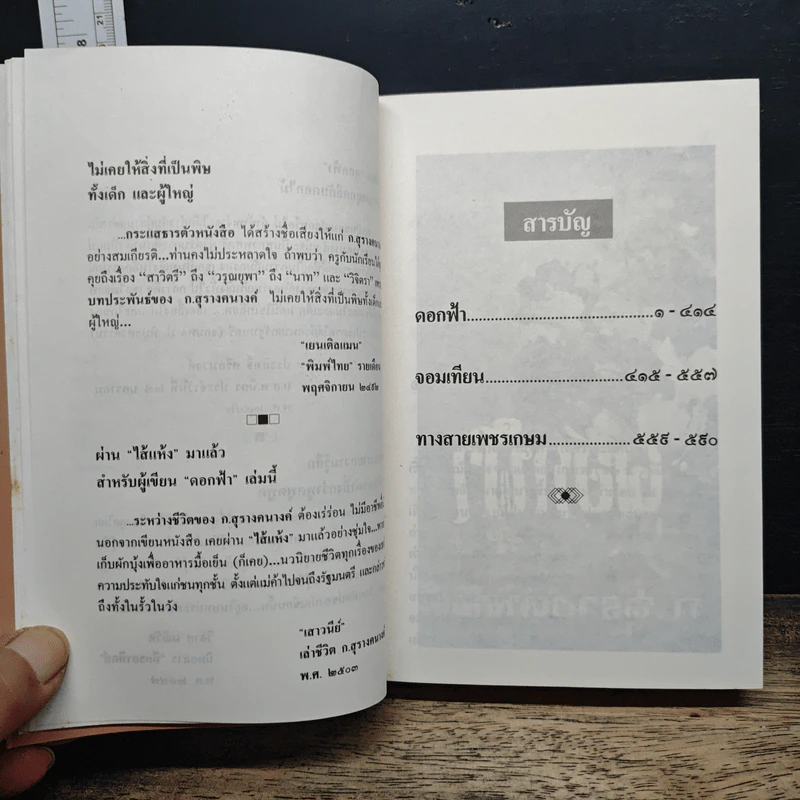 ไม่เคยให้สิ่งที่เป็นพิษ
ทั้งเด็ก และผู้ใหญ่
...กระแสธารตัวหนังสือ ได้สร้างชื่อเสียงให้แก่ ก.สุรางคนางค์
อย่างสมเกียรติ...ท่านคงไม่ประหลาดใจ ถ้าพบว่า ครูกับนักเรียน
คุยถึงเรื่อง “สาวิตรี” ถึง “วรุณยุพา” ถึง “นาท” และ “วิจิตรา”
บทประพันธ์ของ ก.สุรางคนางค์ ไม่เคยให้สิ่งที่เป็นพิษทั้งเด็ก
ผู้ใหญ่...
“เยนเติลแมน”
“พิมพ์ไทย” รายเดือน
พฤศจิกายน ๒๔๙๒
ผ่าน “ไส้แห้ง” มาแล้ว
สำหรับผู้เขียน “ดอกฟ้า” เล่มนี้
...ระหว่างชีวิตของ ก.สุรางคนางค์ ต้องเร่ร่อน ไม่มีอาชีพ
นอกจากเขียนหนังสือ เคยผ่าน “ไส้แห้ง” มาแล้วอย่างชุ่มใจ...
เก็บผักบุ้งเพื่ออาหารมื้อเย็น (ก็เคย)...นวนิยายชีวิตทุกเรื่องของ
ความประทับใจแก่ชนทุกชั้น ตั้งแต่แม่ค้าไปจนถึงรัฐมนตรี และกล่าว
ถึงทั้งในรั้วในวัง
“เสาวนีย์”
เล่าชีวิต ก.สุรางคนางค์
พ.ศ. ๒๕๐๓
สารบัญ
ดอกฟ้า..........................................๑ - ๔๑๔
จอมเทียน...............................๔๑๕ - ๕๕๗
ทางสายเพชรเกษม..................๕๕๙ - ๕๙๐